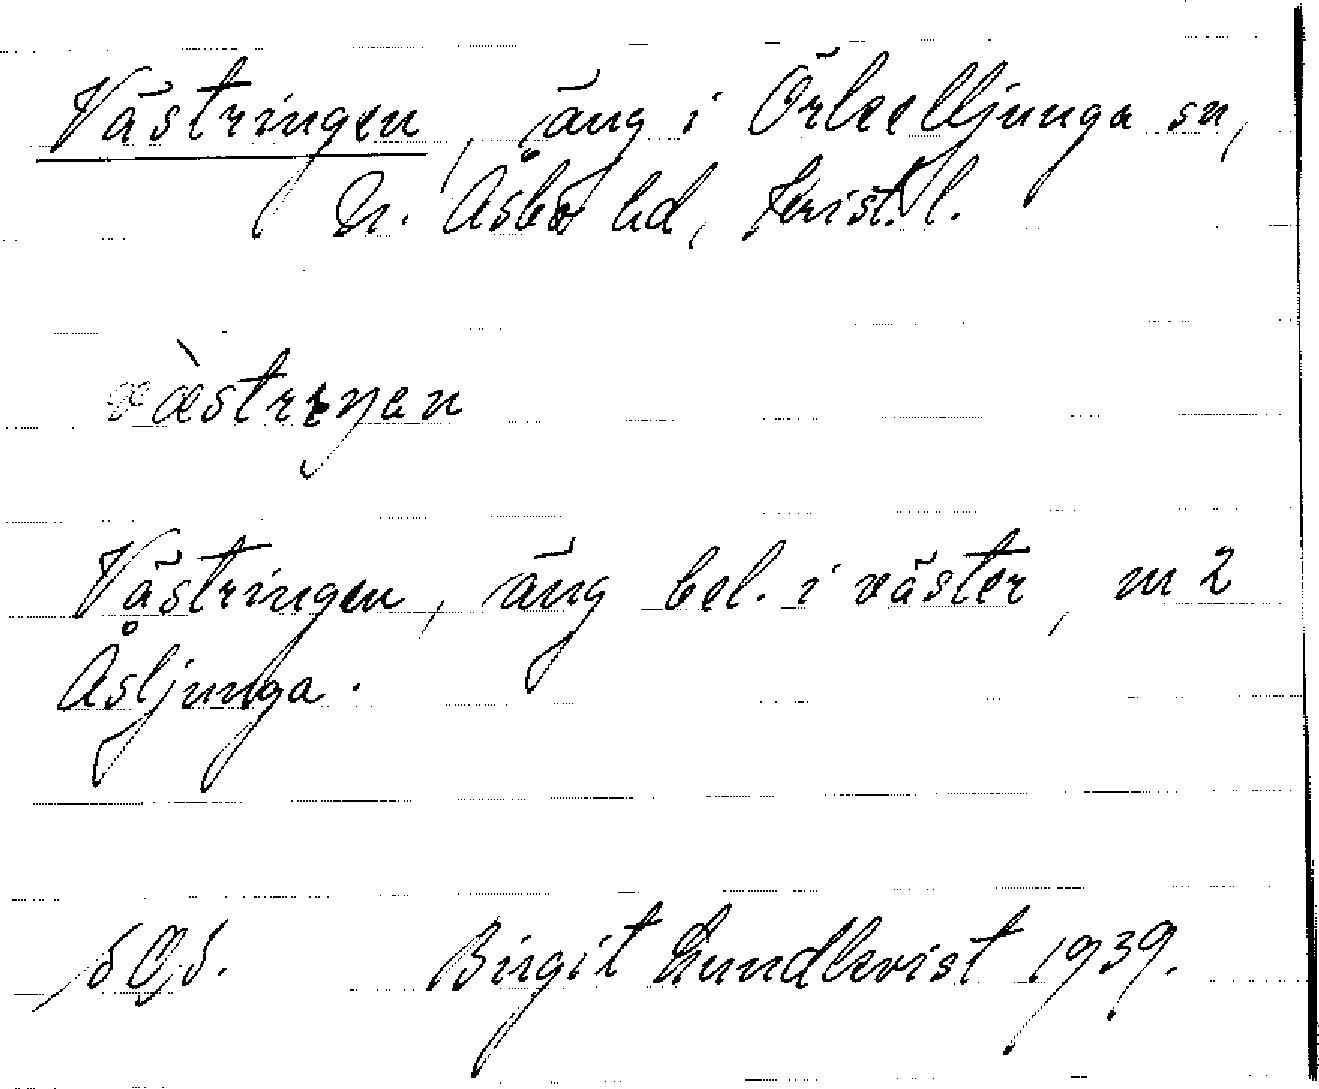 Västringen, äng i Örkelljunga sn,
N. Åsbo hd, Krist. l.
væ̀strıŋen
Västringen, äng bel. i väster, m 2
Åsljunga.
Birgit Lundkvist 1939.